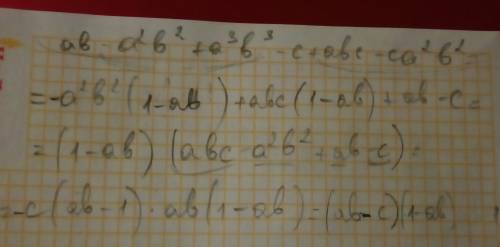 ab - a²b² + a³b³ - c + abc - ca²b² =
= -a²b² (1-ab) + abc (1-ab) + ab - c =
= (1-ab) (abc - a²b² + ab - c) =
= -c (ab - 1) · ab (1-ab) = (ab-c)(1-ab)